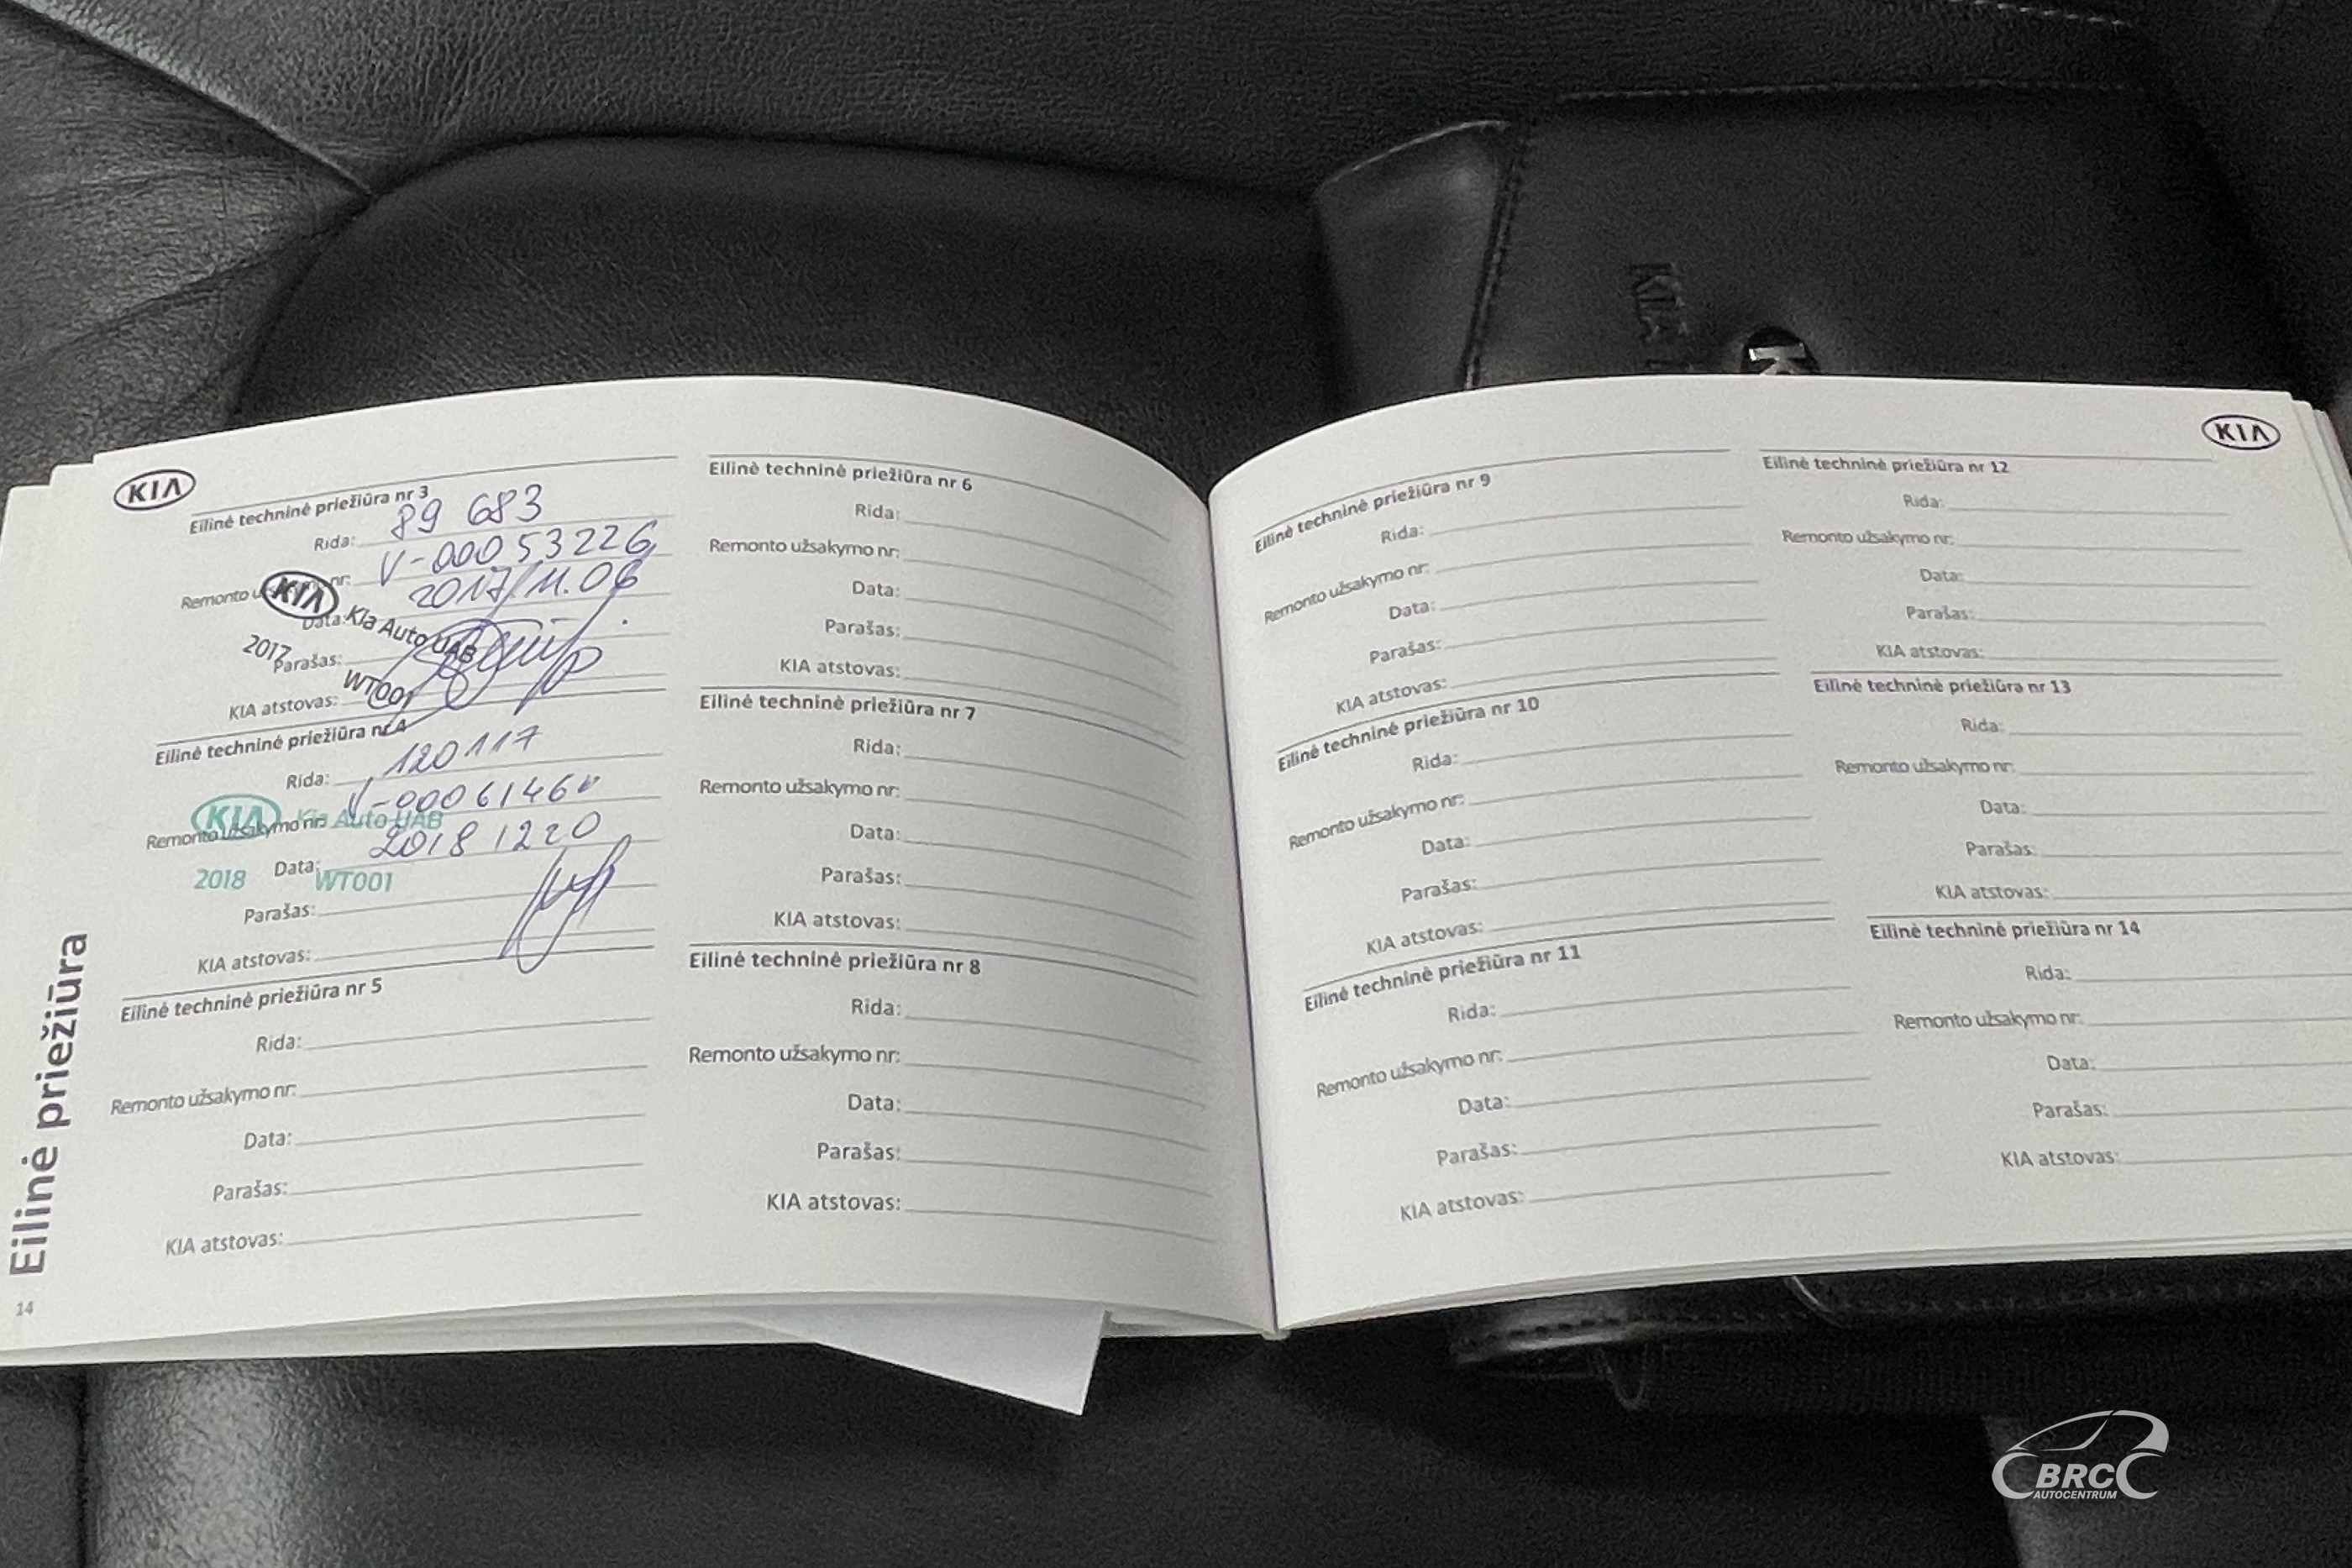 KIA
Eilinė techninė priežiūra nr 3
Rida: 89 683
Remonto nr: V-00053226
Data: 2017/11.06
KIA Kia Auto UAB
2017 WT001
Parašas:
KIA atstovas:
Eilinė techninė priežiūra nr 4
Rida: 120117
Remonto užsakymo nr: V-0006146
Data: 2018 12 20
KIA Kia Auto UAB
2018 WT001
Parašas:
KIA atstovas:
Eilinė techninė priežiūra nr 5
Rida:
Remonto užsakymo nr:
Data:
Parašas:
KIA atstovas:
Eilinė priežiūra
14
Eilinė techninė priežiūra nr 6
Rida:
Remonto užsakymo nr:
Data:
Parašas:
KIA atstovas:
Eilinė techninė priežiūra nr 7
Rida:
Remonto užsakymo nr:
Data:
Parašas:
KIA atstovas:
Eilinė techninė priežiūra nr 8
Rida:
Remonto užsakymo nr:
Data:
Parašas:
KIA atstovas:
Eilinė techninė priežiūra nr 9
Rida:
Remonto užsakymo nr:
Data:
Parašas:
KIA atstovas:
Eilinė techninė priežiūra nr 10
Rida:
Remonto užsakymo nr:
Data:
Parašas:
KIA atstovas:
Eilinė techninė priežiūra nr 11
Rida:
Remonto užsakymo nr:
Data:
Parašas:
KIA atstovas:
KIA
Eilinė techninė priežiūra nr 12
Rida:
Remonto užsakymo nr:
Data:
Parašas:
KIA atstovas:
Eilinė techninė priežiūra nr 13
Rida:
Remonto užsakymo nr:
Data:
Parašas:
KIA atstovas:
Eilinė techninė priežiūra nr 14
Rida:
Remonto užsakymo nr:
Data:
Parašas:
KIA atstovas:
KIA
BRC
AUTOCENTRUM